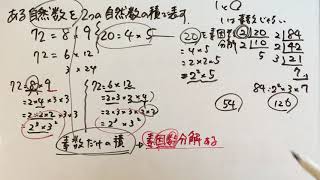 ある自然数を2つの自然数の積で表す
72=8×9
=6×12
=3×24
20=4×5
72=8×9
=2×4×3×3
=2×2×2×3×3
=2³×3²
72=6×12
=2×3×3×4
=2×3×3×2×2
=2³×3²
素数だけの積
素因数分解する
1は素数じゃない
20を素因数分解
=4×5
=2×2×5
=2²×5
2)20
2)10
5
2)84
2)42
3)21
7
84=2²×3×7
54
126